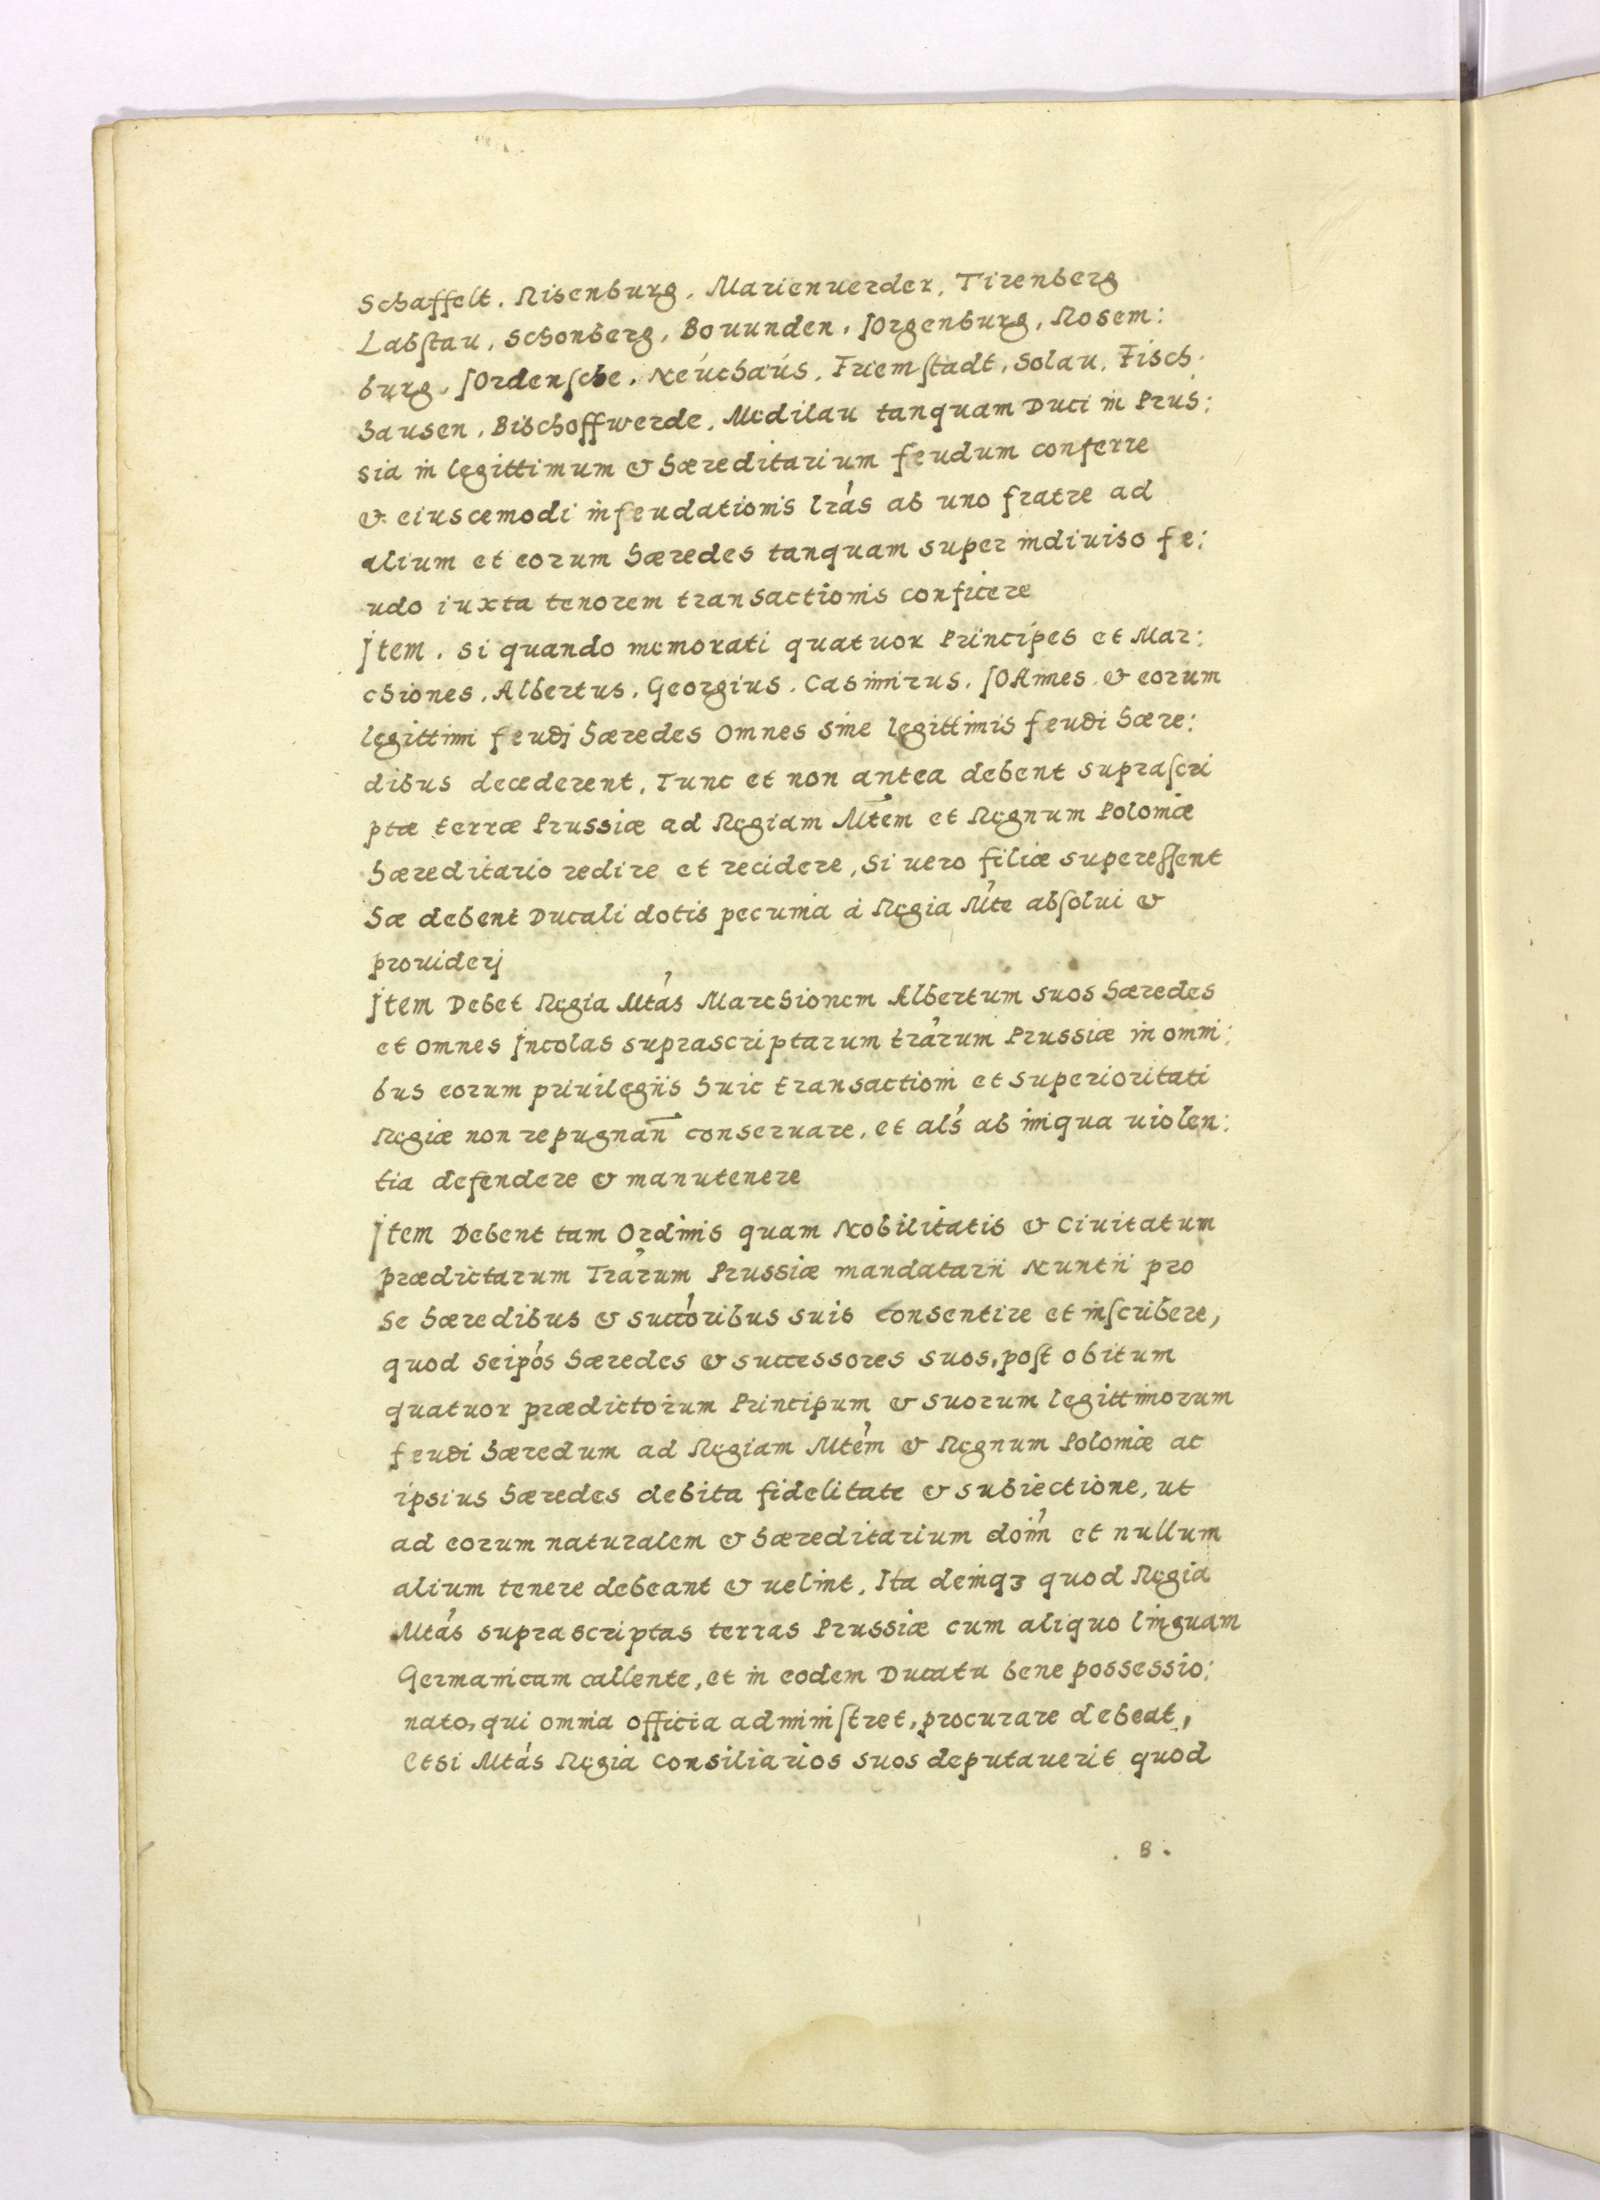 Schaffelt. Risenburg. Marienuerder. Tirenberg
Labſtau. Schonberg. Bouunden. JOrgenburg. Rosem:
burg. JOrdenſche. Neúchaús. Friemſtadt. Solau. Fisch.
hausen. Bischoffwerde. Medilau tanquam Duci in Prus:
sia in legittimum & hæreditarium feudum conferre
& eiuscemodi infeudationis lrás ab uno fratre ad
alium et eorum hæredes tanquam super indiuiso fe:
udo iuxta tenorem transactionis conficere
Jtem. Si quando memorati quatuor Principes et Mar:
chiones. Albertus. Georgius. Casimirus. JOAnnes. & eorum
legittimi feudj hæredes Omnes sine legittimis feudi hære:
dibus decederent, Tunc et non antea debent supraſcri
ptæ terræ Prussiæ ad Regiam Mtem et Regnum Poloniæ
hæreditario redire et recidere, Si uero filiæ supereſſent
hæ debent Ducali dotis pecunia á Regia Mte abſolui &
prouiderj
Jtem Debet Regia Mtás Marchionem Albertum suos hæredes
et Omnes Jncolas suprascriptarum trárum Prussiæ in omni:
bus eorum priuilegiis huic transactioni et superioritati
Regiæ non repugnañ conseruare, et alś ab iniqua uiolen:
tia defendere & manutenere
Jtem Debent tam Ordinis quam Nobilitatis & Ciuitatum
prædictarum Trárum Prussiæ mandatarii Nuntii pro
se hæredibus & succóribus suis consentire et inſcribere,
quod seipós hæredes & successores suos, poſt obitum
quatuor prædictorum Principum & suorum legittimorum
feudi hæredum ad Regiam Mtém & Regnum Poloniæ ac
ipsius hæredes debita fidelitate & subiectione, ut
ad eorum naturalem & hæreditarium doiḿ et nullum
alium tenere debeant & uelint, Ita deniqꝫ quod Regia
Mtás suprascriptas terras Prussiæ cum aliquo linguam
Germanicam callente, et in eodem Ducatu bene possessio:
nato, qui omnia officia adminiſtret, procurare debeat,
Etsi Mtás Regia Consiliarios suos deputauerit quod
. B .